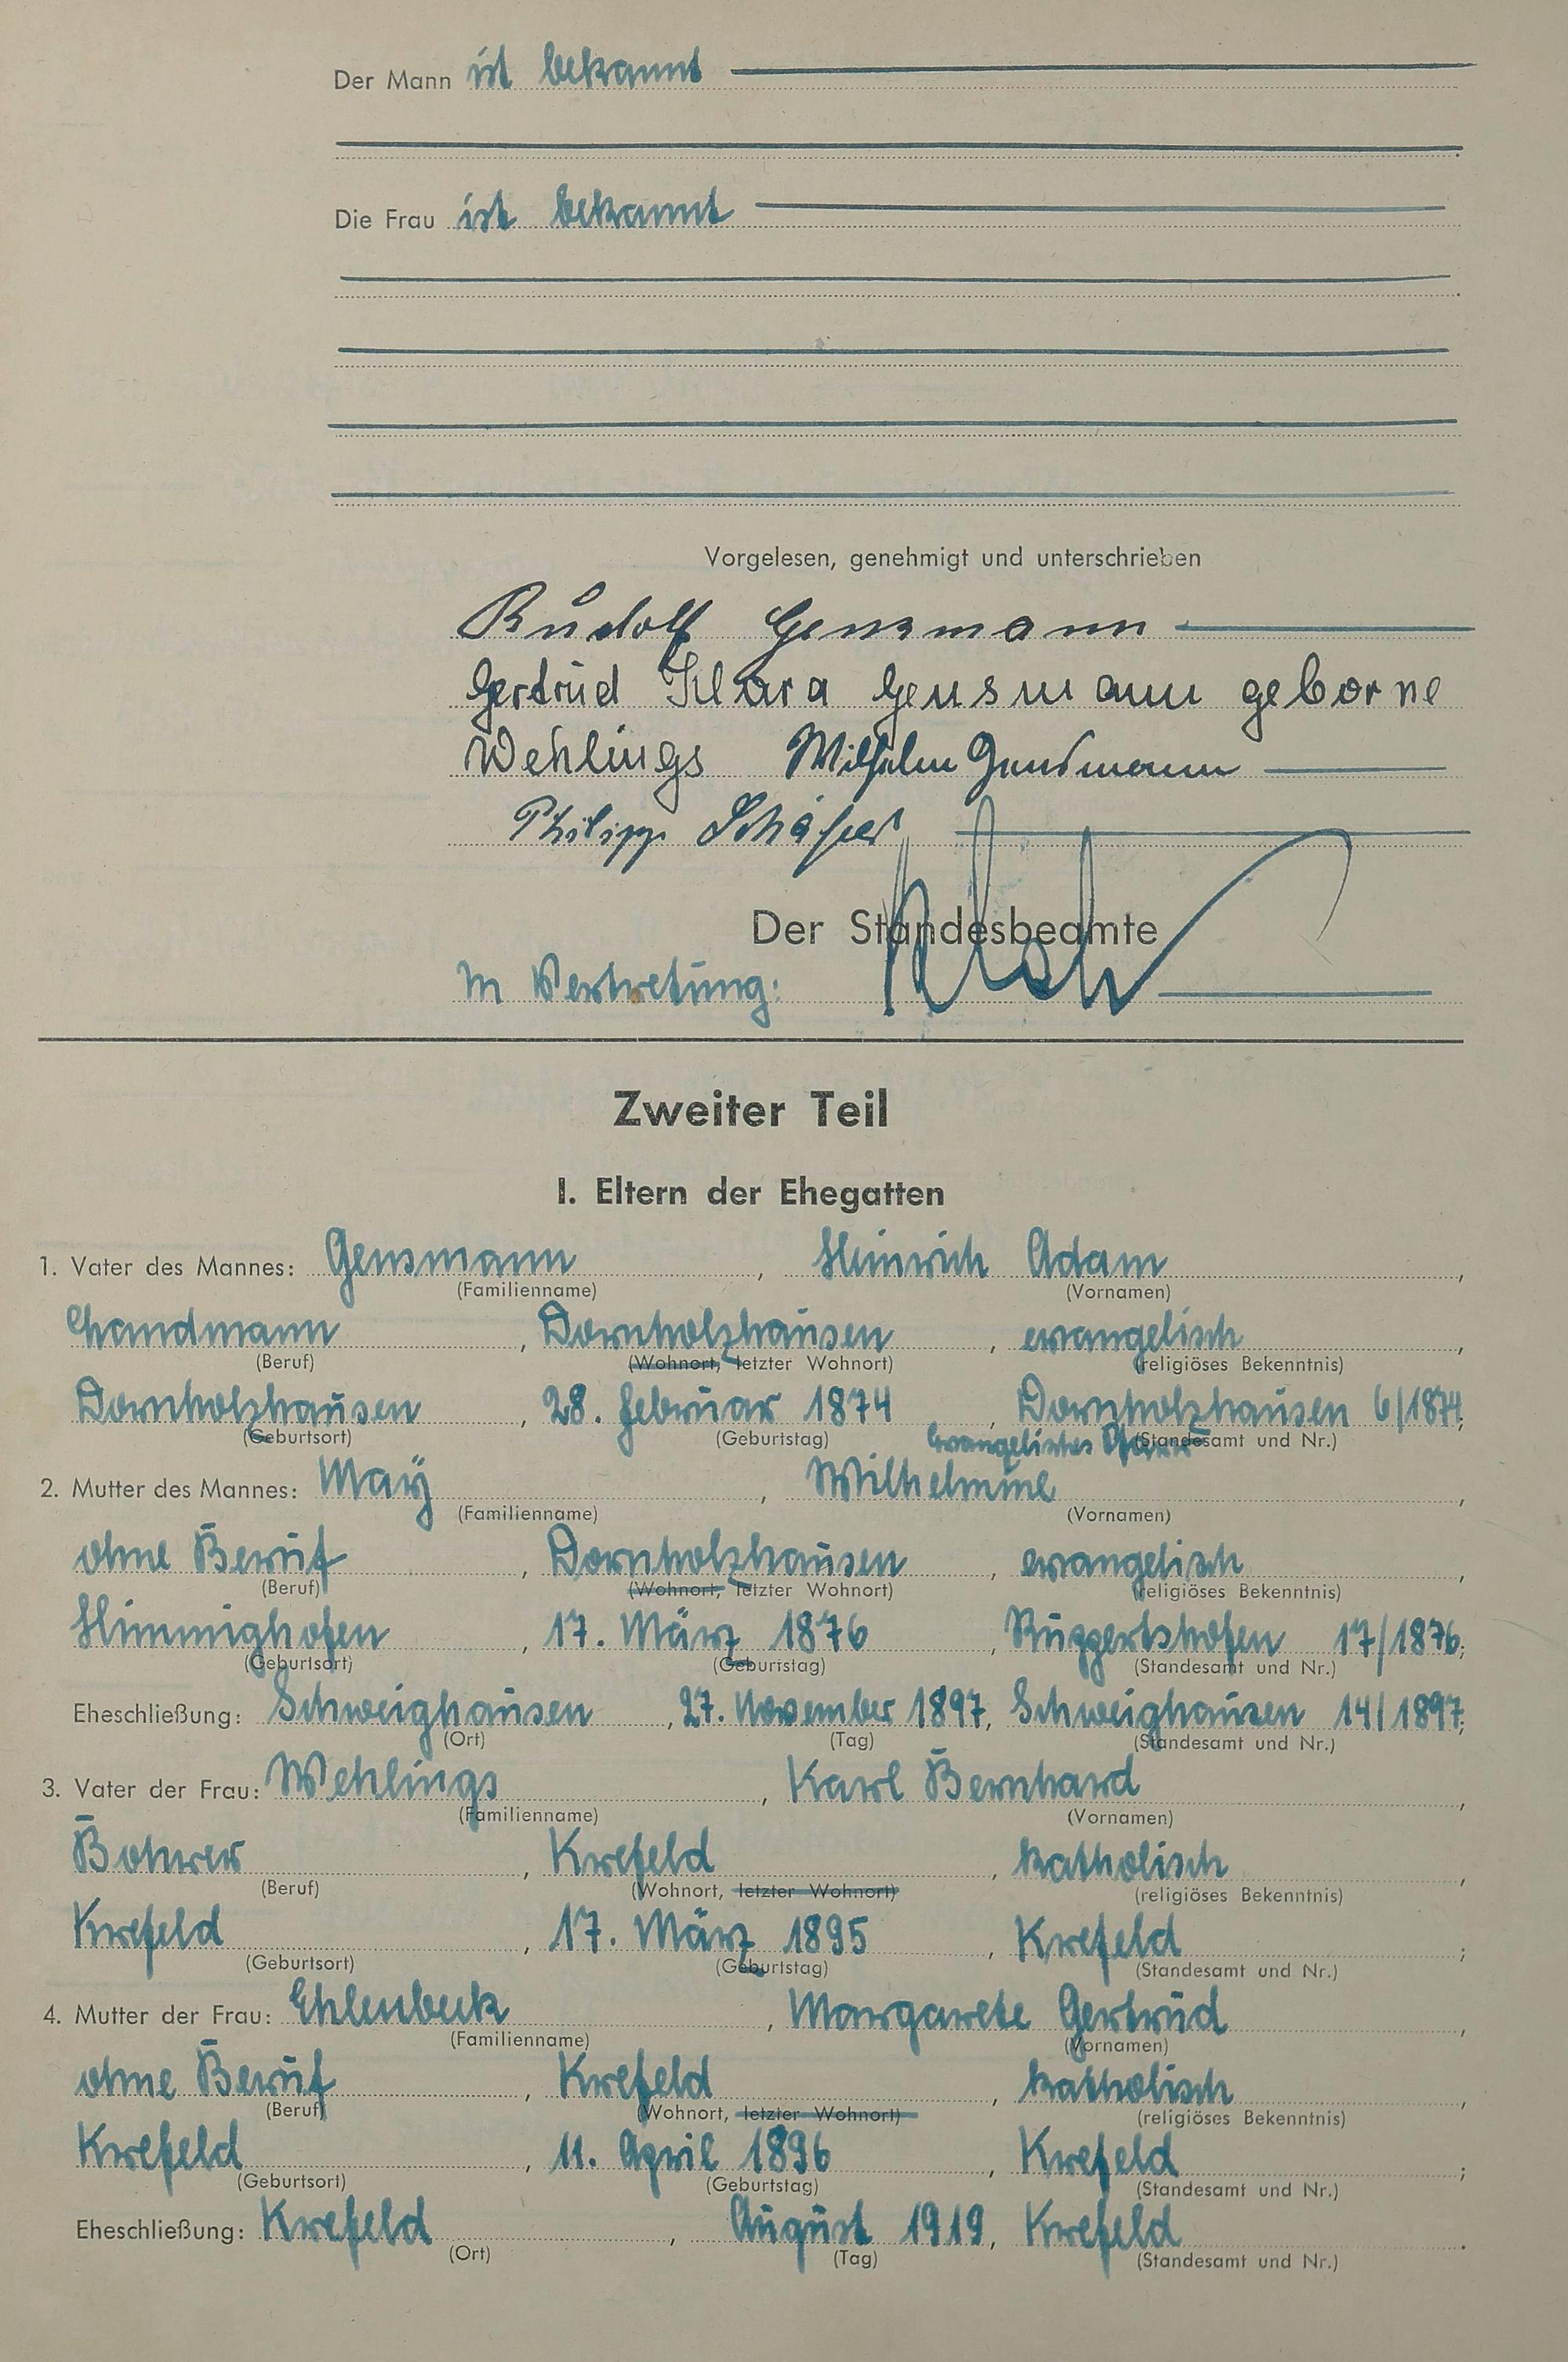 Der Mann ist bekannt
Die Frau ist bekannt
Vorgelesen, genehmigt und unterschrieben
Rudolf Gensmann
Gertrud Klara Gensmann geborne
Wehlings Wilhelm Gensmann
Philipp Schäfer
Der Standesbeamte
In Vertretung:
Zweiter Teil
I. Eltern der Ehegatten
1. Vater des Mannes: Gensmann, Heinrich Adam,
(Familienname) (Vornamen)
Landmann, Dornholzhausen, evangelisch,
(Beruf) (Wohnort, letzter Wohnort) (religiöses Bekenntnis)
Dornholzhausen, 28. Februar 1874, Dornholzhausen 6/1874;
(Geburtsort) (Geburtstag) evangelisches (Standesamt und Nr.)
2. Mutter des Mannes: Maÿ, Wilhelmine,
(Familienname) (Vornamen)
ohne Beruf, Dornholzhausen, evangelisch,
(Beruf) (Wohnort, letzter Wohnort) (religiöses Bekenntnis)
Himmighofen, 17. März 1876, Ruppertshofen 17/1876;
(Geburtsort) (Geburtstag) (Standesamt und Nr.)
Eheschließung: Schweighausen, 27. November 1897, Schweighausen 14/1897;
(Ort) (Tag) (Standesamt und Nr.)
3. Vater der Frau: Wehlings, Karl Bernhard,
(Familienname) (Vornamen)
Bohrer, Krefeld, katholisch,
(Beruf) (Wohnort, letzter Wohnort) (religiöses Bekenntnis)
Krefeld, 17. März 1895, Krefeld;
(Geburtsort) (Geburtstag) (Standesamt und Nr.)
4. Mutter der Frau: Ehlenbeck, Margarete Gertrud,
(Familienname) (Vornamen)
ohne Beruf, Krefeld, katholisch,
(Beruf) (Wohnort, letzter Wohnort) (religiöses Bekenntnis)
Krefeld, 11. April 1896, Krefeld;
(Geburtsort) (Geburtstag) (Standesamt und Nr.)
Eheschließung: Krefeld, August 1919, Krefeld.
(Ort) (Tag) (Standesamt und Nr.)